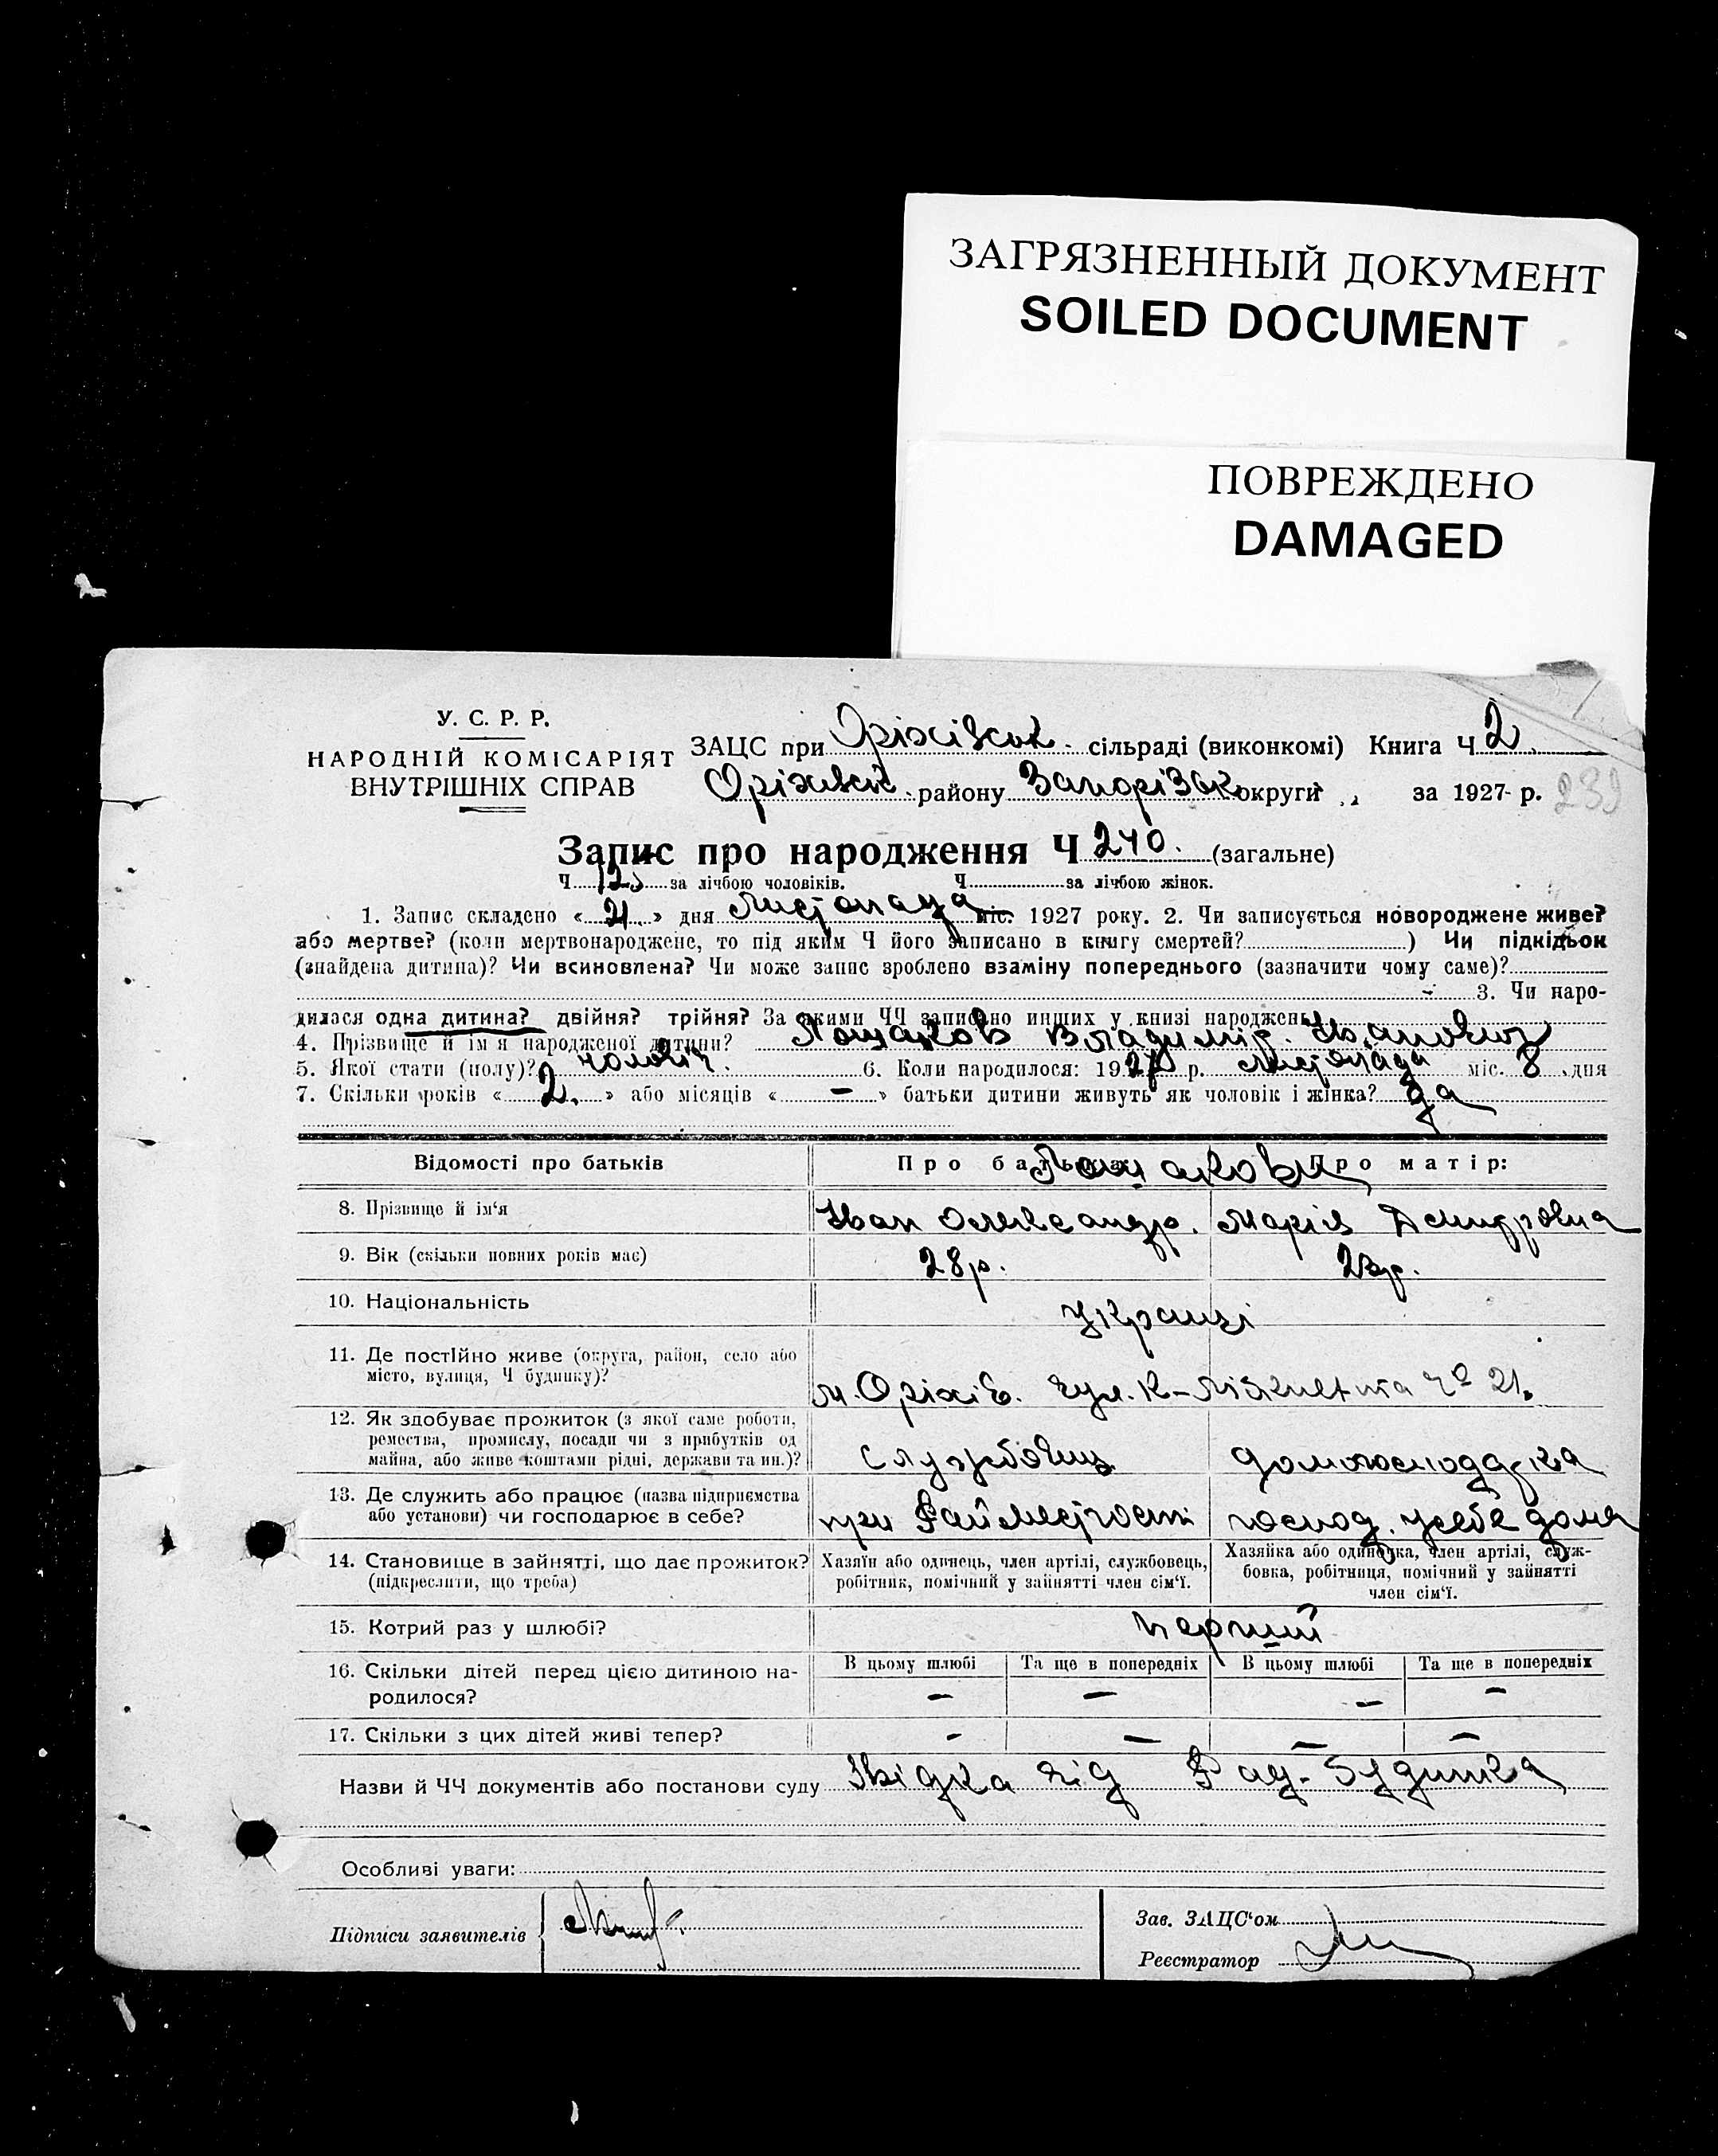 ЗАГРЯЗНЕННЫЙ ДОКУМЕНТ
SOILED DOCUMENT
ПОВРЕЖДЕНО
DAMAGED
У. С. Р. Р.
НАРОДНІЙ КОМІСАРІЯТ
ВНУТРІШНІХ СПРАВ
ЗАЦС при Оріхівськ. сільраді (виконкомі) Книга Ч 2.
Оріхівськ. району Запорізьк округи за 1927 р. 239
Запис про народження Ч 240. (загальне)
Ч 125 за лічбою чоловіків. Ч за лічбою жінок.
1. Запис складено « 21 » дня Листопада міс. 1927 року. 2. Чи записується новороджене живе?
або мертве? (коли мертвонароджене, то під яким Ч його записано в книгу смертей? ) Чи підкідьок
(знайдена дитина)? Чи всиновлена? Чи може запис зроблено взаміну попереднього (зазначити чому саме)?
3. Чи наро-
дилася одна дитина? двійня? трійня? За якими ЧЧ записано инших у книзі народжень
4. Прізвище й ім'я народженої дитини? Владимір. Іванович
5. Якої стати (полу)? чоловіч. 6. Коли народилося: 1927 р. Листопада міс. 8 дня
7. Скільки років « 2. » або місяців « — » батьки дитини живуть як чоловік і жінка? да
Відомості про батьків Про батька: Про матір:
8. Прізвище й ім'я Іван Олександр. Марія Дмитровна
9. Вік (скільки повних років має) 28р. 23р.
10. Національність Українці
11. Де постійно живе (округа, район, село або
місто, вулиця, Ч будинку)? м. Оріхів. вул. К-Лібкнехта Ч° 21.
12. Як здобуває прожиток (з якої саме роботи,
ремества, промислу, посади чи з прибутків од
майна, або живе коштами рідні, держави та ин.)? службовець домогосподарка
13. Де служить або працює (назва підприємства
або установи) чи господарює в себе? при господ. у себе дома
14. Становище в зайнятті, що дає прожиток?
(підкреслити, що треба)
Хазяїн або одинець, член артілі, службовець,
робітник, помічний у зайнятті член сім'ї.
Хазяйка або одиначка, член артілі, служ-
бовка, робітниця, помічний у зайнятті
член сім'ї.
15. Котрий раз у шлюбі? перший
16. Скільки дітей перед цією дитиною на-
родилося?
В цьому шлюбі Та ще в попередніх В цьому шлюбі Та ще в попередніх
— — — —
17. Скільки з цих дітей живі тепер? — — — —
Назви й ЧЧ документів або постанови суду від Рад-Будинка
Особливі уваги:
Підписи заявителів
Зав. ЗАЦС'ом
Реєстратор